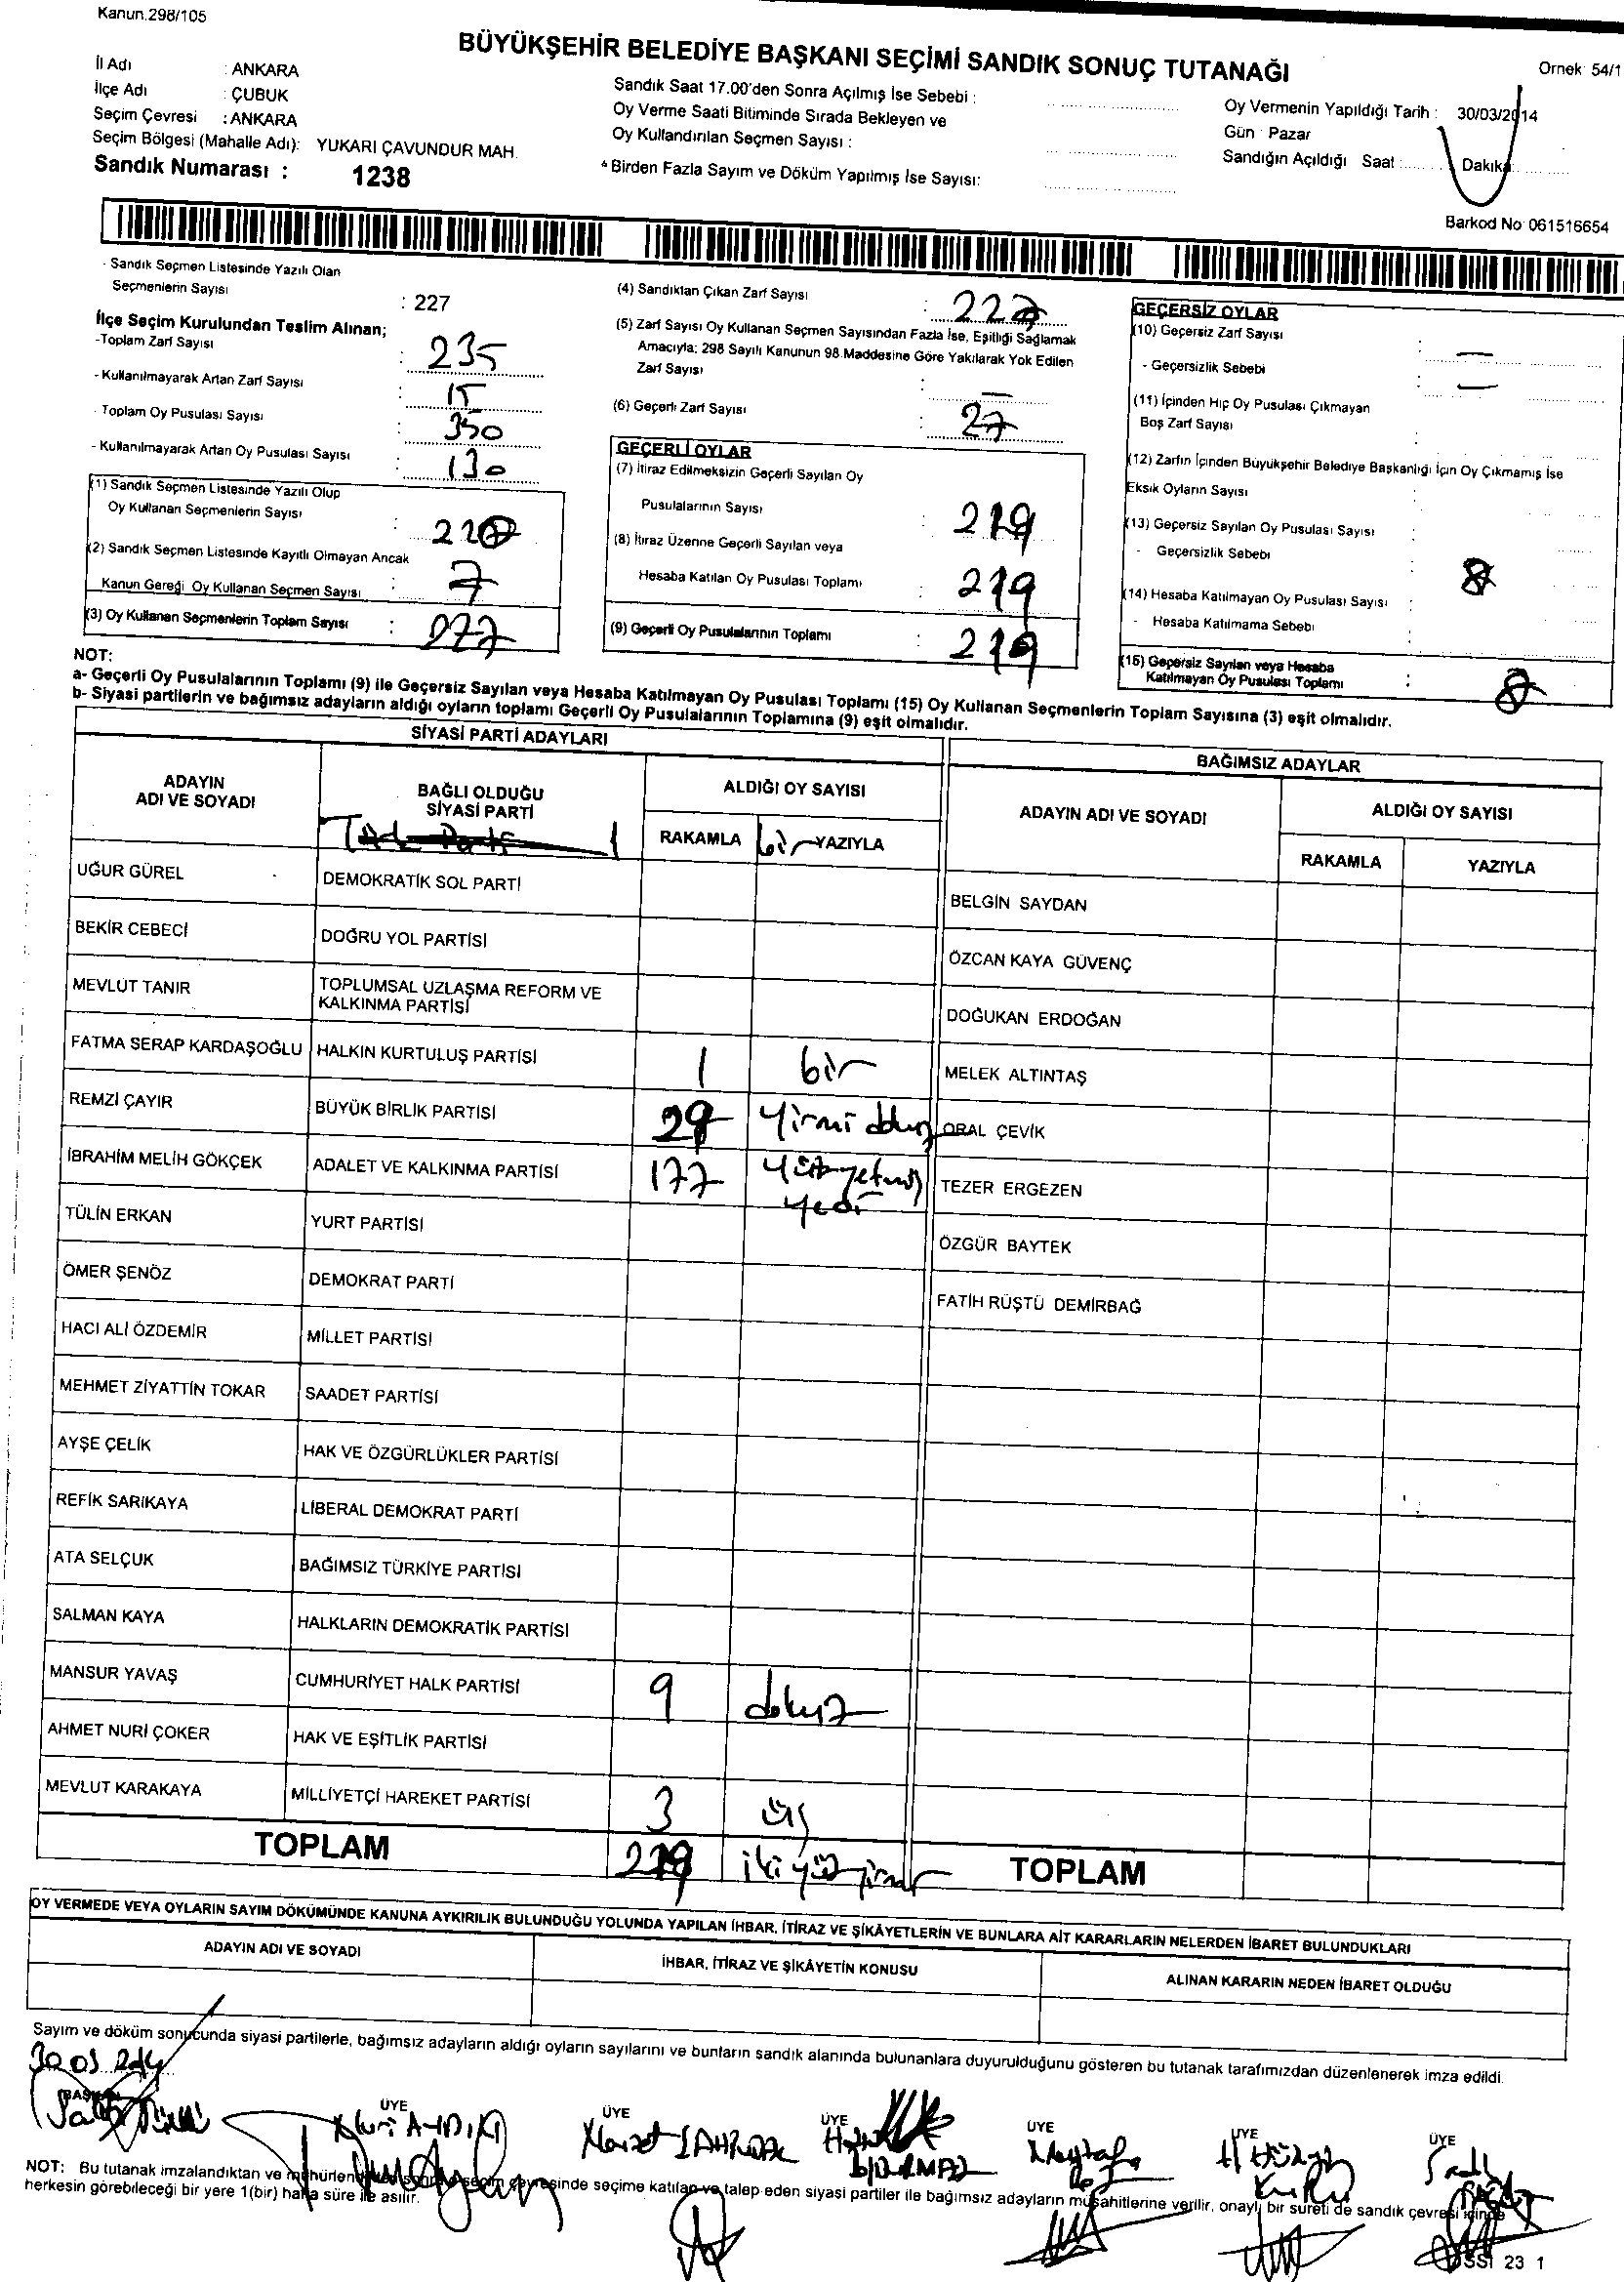 Kanun.298/105
BÜYÜKŞEHİR BELEDİYE BAŞKANI SEÇİMİ SANDIK SONUÇ TUTANAĞI
Ornek: 54/1
İl Adı : ANKARA
İlçe Adı : ÇUBUK
Seçim Çevresi : ANKARA
Seçim Bölgesi (Mahalle Adı): YUKARI ÇAVUNDUR MAH.
Sandık Numarası : 1238
Sandık Saat 17.00'den Sonra Açılmış İse Sebebi :
Oy Verme Saati Bitiminde Sırada Bekleyen ve
Oy Kullandırılan Seçmen Sayısı :
* Birden Fazla Sayım ve Döküm Yapılmış İse Sayısı:
Oy Vermenin Yapıldığı Tarih : 30/03/2014
Gün : Pazar
Sandığın Açıldığı Saat : Dakika:
Barkod No: 061516654
- Sandık Seçmen Listesinde Yazılı Olan
Seçmenlerin Sayısı : 227
İlçe Seçim Kurulundan Teslim Alınan;
-Toplam Zarf Sayısı : 235
- Kullanılmayarak Artan Zarf Sayısı : 15
- Toplam Oy Pusulası Sayısı : 350
- Kullanılmayarak Artan Oy Pusulası Sayısı : 130
(1) Sandık Seçmen Listesinde Yazılı Olup
Oy Kullanan Seçmenlerin Sayısı : 220
(2) Sandık Seçmen Listesinde Kayıtlı Olmayan Ancak
Kanun Gereği Oy Kullanan Seçmen Sayısı : 7
(3) Oy Kullanan Seçmenlerin Toplam Sayısı : 227
(4) Sandıktan Çıkan Zarf Sayısı : 227
(5) Zarf Sayısı Oy Kullanan Seçmen Sayısından Fazla İse, Eşitliği Sağlamak
Amacıyla; 298 Sayılı Kanunun 98.Maddesine Göre Yakılarak Yok Edilen
Zarf Sayısı : —
(6) Geçerli Zarf Sayısı : 27
GEÇERLİ OYLAR
(7) İtiraz Edilmeksizin Geçerli Sayılan Oy
Pusulalarının Sayısı : 219
(8) İtiraz Üzerine Geçerli Sayılan veya
Hesaba Katılan Oy Pusulası Toplamı : 219
(9) Geçerli Oy Pusulalarının Toplamı : 219
GEÇERSİZ OYLAR
(10) Geçersiz Zarf Sayısı : —
- Geçersizlik Sebebi : —
(11) İçinden Hiç Oy Pusulası Çıkmayan
Boş Zarf Sayısı :
(12) Zarfın İçinden Büyükşehir Belediye Başkanlığı İçin Oy Çıkmamış İse
Eksik Oyların Sayısı :
(13) Geçersiz Sayılan Oy Pusulası Sayısı :
- Geçersizlik Sebebi : 8
(14) Hesaba Katılmayan Oy Pusulası Sayısı :
- Hesaba Katılmama Sebebi :
(15) Geçersiz Sayılan veya Hesaba
Katılmayan Oy Pusulası Toplamı : 8
NOT:
a- Geçerli Oy Pusulalarının Toplamı (9) ile Geçersiz Sayılan veya Hesaba Katılmayan Oy Pusulası Toplamı (15) Oy Kullanan Seçmenlerin Toplam Sayısına (3) eşit olmalıdır.
b- Siyasi partilerin ve bağımsız adayların aldığı oyların toplamı Geçerli Oy Pusulalarının Toplamına (9) eşit olmalıdır.
SİYASİ PARTİ ADAYLARI
ADAYIN ADI VE SOYADI
BAĞLI OLDUĞU SİYASİ PARTİ
ALDIĞI OY SAYISI
RAKAMLA bir YAZIYLA
UĞUR GÜREL DEMOKRATİK SOL PARTİ
BEKİR CEBECİ DOĞRU YOL PARTİSİ
MEVLÜT TANIR TOPLUMSAL UZLAŞMA REFORM VE
KALKINMA PARTİSİ
FATMA SERAP KARDAŞOĞLU HALKIN KURTULUŞ PARTİSİ 1 bir
REMZİ ÇAYIR BÜYÜK BİRLİK PARTİSİ 29 Yirmi dokuz
İBRAHİM MELİH GÖKÇEK ADALET VE KALKINMA PARTİSİ 177 Yüzyetmiş
yedi
TÜLİN ERKAN YURT PARTİSİ
ÖMER ŞENÖZ DEMOKRAT PARTİ
HACI ALİ ÖZDEMİR MİLLET PARTİSİ
MEHMET ZİYATTİN TOKAR SAADET PARTİSİ
AYŞE ÇELİK HAK VE ÖZGÜRLÜKLER PARTİSİ
REFİK SARIKAYA LİBERAL DEMOKRAT PARTİ
ATA SELÇUK BAĞIMSIZ TÜRKİYE PARTİSİ
SALMAN KAYA HALKLARIN DEMOKRATİK PARTİSİ
MANSUR YAVAŞ CUMHURİYET HALK PARTİSİ 9 dokuz
AHMET NURİ ÇOKER HAK VE EŞİTLİK PARTİSİ
MEVLUT KARAKAYA MİLLİYETÇİ HAREKET PARTİSİ 3 üç
TOPLAM 219 iki yüz
BAĞIMSIZ ADAYLAR
ADAYIN ADI VE SOYADI
ALDIĞI OY SAYISI
RAKAMLA YAZIYLA
BELGİN SAYDAN
ÖZCAN KAYA GÜVENÇ
DOĞUKAN ERDOĞAN
MELEK ALTINTAŞ
ORAL ÇEVİK
TEZER ERGEZEN
ÖZGÜR BAYTEK
FATİH RÜŞTÜ DEMİRBAĞ
TOPLAM
OY VERMEDE VEYA OYLARIN SAYIM DÖKÜMÜNDE KANUNA AYKIRILIK BULUNDUĞU YOLUNDA YAPILAN İHBAR, İTİRAZ VE ŞİKÂYETLERİN VE BUNLARA AİT KARARLARIN NELERDEN İBARET BULUNDUKLARI
ADAYIN ADI VE SOYADI İHBAR, İTİRAZ VE ŞİKÂYETİN KONUSU ALINAN KARARIN NEDEN İBARET OLDUĞU
Sayım ve döküm sonucunda siyasi partilerle, bağımsız adayların aldığı oyların sayılarını ve bunların sandık alanında bulunanlara duyurulduğunu gösteren bu tutanak tarafımızdan düzenlenerek imza edildi.
30.03.2014
BAŞKAN ÜYE ÜYE ÜYE ÜYE ÜYE ÜYE
Nuri AYDIN
NOT: Bu tutanak imzalandıktan ve mühürlendikten sonra seçim çevresinde seçime katılan ve talep eden siyasi partiler ile bağımsız adayların müşahitlerine verilir, onaylı bir sureti de sandık çevresi içinde
herkesin görebileceği bir yere 1(bir) hafta süre ile asılır.
23 1